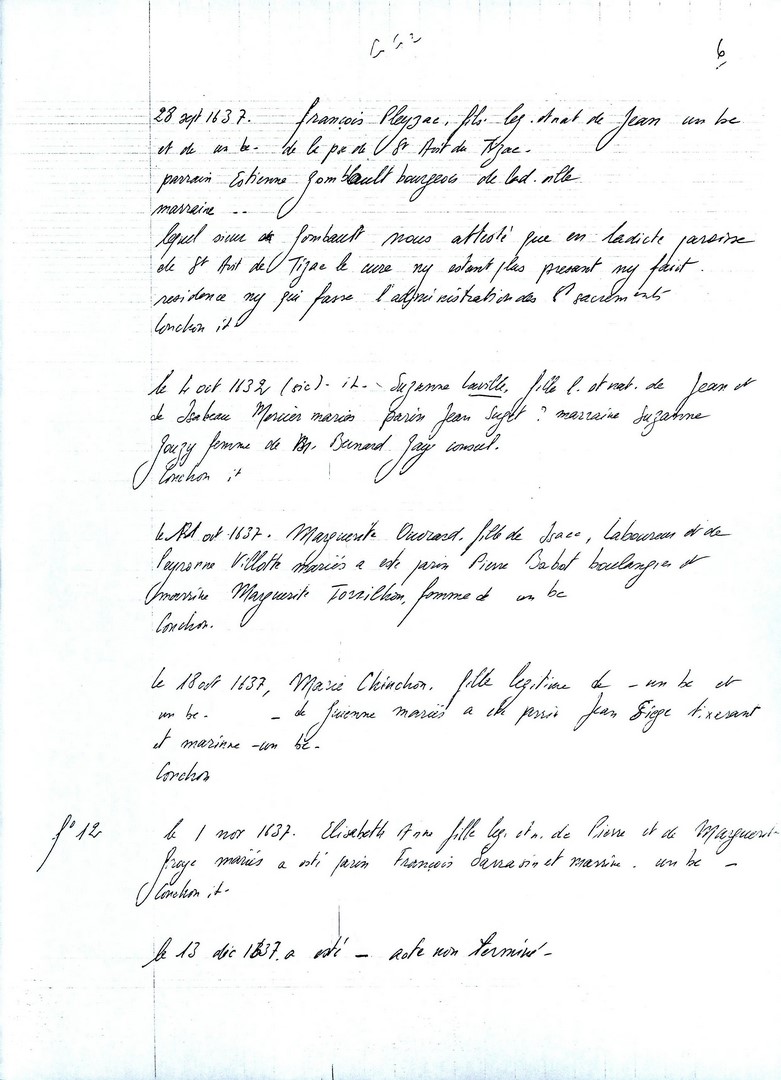 6
28 sept 1637. françois Pleyzac, fils leg. et nat de Jean un bc
et de un bc - de la pse de St Ant du Tizac -
parrain Estienne Gombault bourgeois de lad. ville
marraine --
lequel sieur de Gombault nous attesté que en ladicte paroisse
de St Ant de Tizac le cure ny estant plus present ny faict
residence ny qui fasse l'administration des Sts sacrements
Conchon it
le 4 oct 1632 (sic) - it - Suzanne Laville, fille l. et nat. de Jean et
de Isabeau Mercier mariés parin Jean Suget ? marraine Suzanne
Jouzy femme de Mr. Bernard Jay conseil.
Conchon it
le oct 1637. Marguerite Ouvrard, fille de Isaac, Laboureur et de
Peyronne Villotte mariés a este parin Pierre Babot boulangier et
marrine Marguerite Torailhon, femme de un bc
Conchon.
le 18 oct 1637, Marie Chinchon, fille legitime de - un bc et
un bc - - de Guienne mariés a este parin Jean Siege tixerant
et marinne - un bc -
Conchon
f° 12 le 1 nov 1637. Elisabeth Anne fille leg. et n. de Pierre et de Marguerit-
Fraye mariés a esté parin François Sarrasin et marrine . un bc -
Conchon it -
le 13 dec 1637 a esté - acte non terminé -